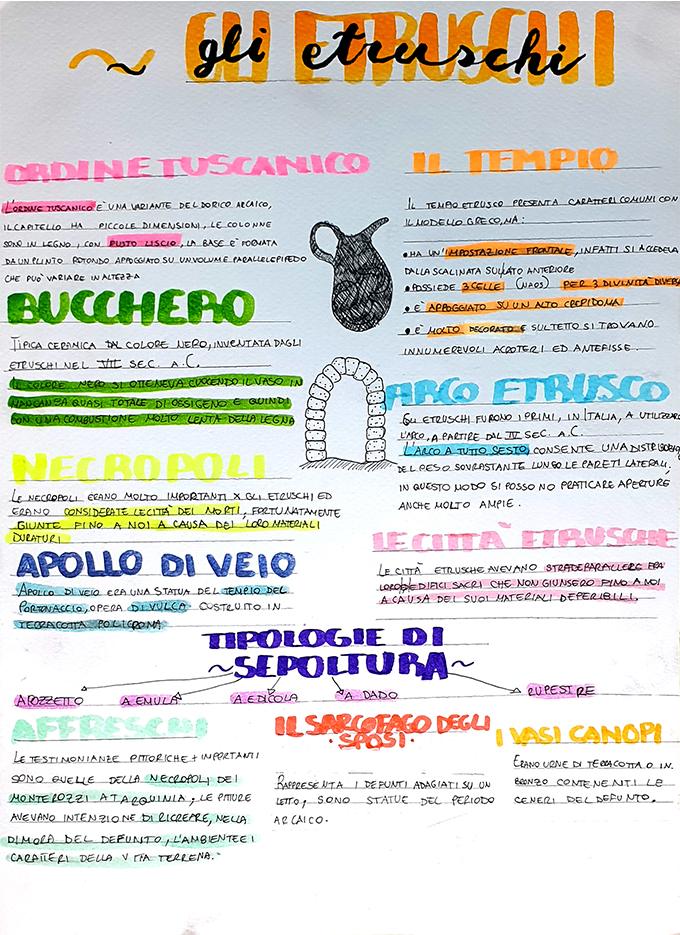 GLI ETRUSCHI
gli etruschi
ORDINE TUSCANICO
L'ORDINE TUSCANICO E' UNA VARIANTE DEL DORICO ARCAICO,
IL CAPITELLO HA PICCOLE DIMENSIONI, LE COLONNE
SONO IN LEGNO, CON FUSTO LISCIO, LA BASE E' FORMATA
DA UN PLINTO ROTONDO APPOGGIATO SU UN VOLUME PARALLELEPIPEDO
CHE PUO' VARIARE IN ALTEZZA
BUCCHERO
TIPICA CERAMICA DAL COLORE NERO, INVENTATA DAGLI
ETRUSCHI NEL VII SEC. A.C.
IL COLORE NERO SI OTTENEVA CUOCENDO IL VASO IN
MANCANZA QUASI TOTALE DI OSSIGENO E QUINDI
CON UNA COMBUSTIONE MOLTO LENTA DELLA LEGNA
NECROPOLI
LE NECROPOLI ERANO MOLTO IMPORTANTI X GLI ETRUSCHI ED
ERANO CONSIDERATE LE CITTÀ DEI MORTI, FORTUNATAMENTE
GIUNTE FINO A NOI A CAUSA DEI LORO MATERIALI
DURATURI
APOLLO DI VEIO
APOLLO DI VEIO ERA UNA STATUA DEL TEMPIO DEL
PORTONACCIO, OPERA DI VULCA COSTRUITO IN
TERRACOTTA POLICROMA
IL TEMPIO
IL TEMPIO ETRUSCO PRESENTA CARATTERI COMUNI CON
IL MODELLO GRECO, MA:
• HA UN'IMPOSTAZIONE FRONTALE, INFATTI SI ACCEDEVA
DALLA SCALINATA SUL LATO ANTERIORE
• POSSIEDE 3 CELLE (NAOS) PER 3 DIVINITÀ DIVERSE
• E' APPOGGIATO SU UN ALTO CREPIDOMA
• E' MOLTO DECORATO E SUL TETTO SI TROVANO
INNUMEREVOLI ACROTERI ED ANTEFISSE.
ARCO ETRUSCO
GLI ETRUSCHI FURONO I PRIMI, IN ITALIA, A UTILIZZARE
L'ARCO, A PARTIRE DAL IV SEC. A.C.
L'ARCO A TUTTO SESTO, CONSENTE UNA
DEL PESO SOVRASTANTE LUNGO LE PARETI LATERALI,
IN QUESTO MODO SI POSSONO PRATICARE APERTURE
ANCHE MOLTO AMPIE.
LE CITTÀ ETRUSCHE
LE CITTÀ ETRUSCHE AVEVANO STRADE PARALLELE FRA
LORO EDIFICI SACRI CHE NON GIUNSERO FINO A NOI
A CAUSA DEI SUOI MATERIALI DEPERIBILI.
TIPOLOGIE DI
~SEPOLTURA~
A POZZETTO A EDICOLA A DADO RUPESTRE
AFFRESCHI
LE TESTIMONIANZE PITTORICHE + IMPORTANTI
SONO QUELLE DELLA NECROPOLI DEI
MONTEROZZI A TARQUINIA, LE PITTURE
AVEVANO INTENZIONE DI RICREARE, NELLA
DIMORA DEL DEFUNTO, L'AMBIENTE E I
CARATTERI DELLA VITA TERRENA.
IL SARCOFAGO DEGLI
· SPOSI ·
RAPPRESENTA I DEFUNTI ADAGIATI SU UN
LETTO, SONO STATUE DEL PERIODO
ARCAICO.
I VASI CANOPI
ERANO URNE DI TERRACOTTA O IN
BRONZO CONTENENTI LE
CENERI DEL DEFUNTO.